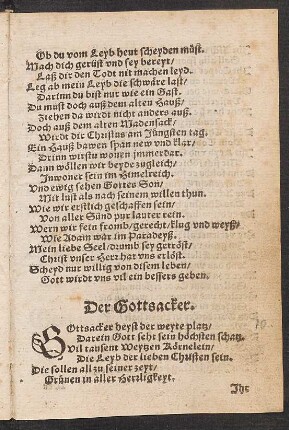 Ob du vom Leyb heut scheyden müst.
Mach dich gerüst vnd sey bereyt/
Laß dir den Todt nit machen leyd.
Leg ab mein Leyb die schwäre last/
Darinn du bist nur wie ein Gast.
Du must doch auß dem alten Hauß/
Ziehen da wirdt nicht anders auß.
Doch auß dem alten Madensack/
Wirdt dir Christus am Jüngsten tag.
Ein Hauß bawen span new vnd klar/
Drinn wirstu wonen jmmerdar.
Dann wöllen wir beyde zugleich/
Inwoner sein im Himelreich.
Vnd ewig sehen Gottes Son/
Mit lust als nach seinem willen thun.
Wie wir erstlich geschaffen sein/
Von aller Sünd pur lauter rein.
Wern wir sein fromb/gerecht/klug vnd weyß/
Wie Adam war im Paradeyß.
Mein liebe Seel/drumb sey getröst/
Christ vnser Herr hat vns erlöst.
Scheyd nur willig von disem leben/
Gott wirdt vns vil ein bessers geben.
Der Gottsacker.
GOttsacker heyst der weyte platz/
Darein Gott seht sein höchsten schatz.
Vil tausent Weytzen Körnelein/
Die Leyb der lieben Christen sein.
Die sollen all zu seiner zeyt/
Grünen in aller Herrligkeyt.
Ihr